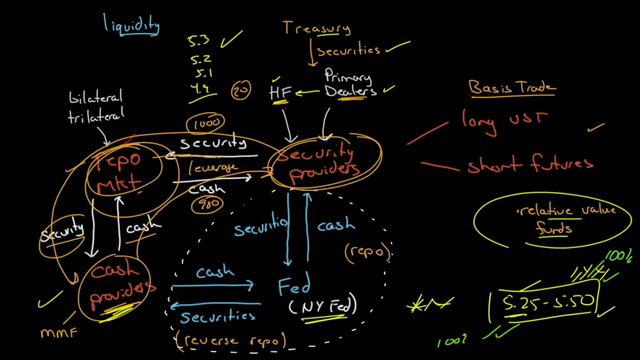 liquidity
5.3
5.2
5.1
4.9
20
Treasury
securities
HF
Primary
Dealers
Basis Trade
long UST
short futures
relative value
funds
bilateral
trilateral
1000
security
repo
mkt
leverage
cash
980
security
providers
security
cash
cash
providers
MMF
securitio
cash
(repo)
cash
securities
Fed
(NY Fed)
(reverse repo)
5.25-5.50
100%
100%